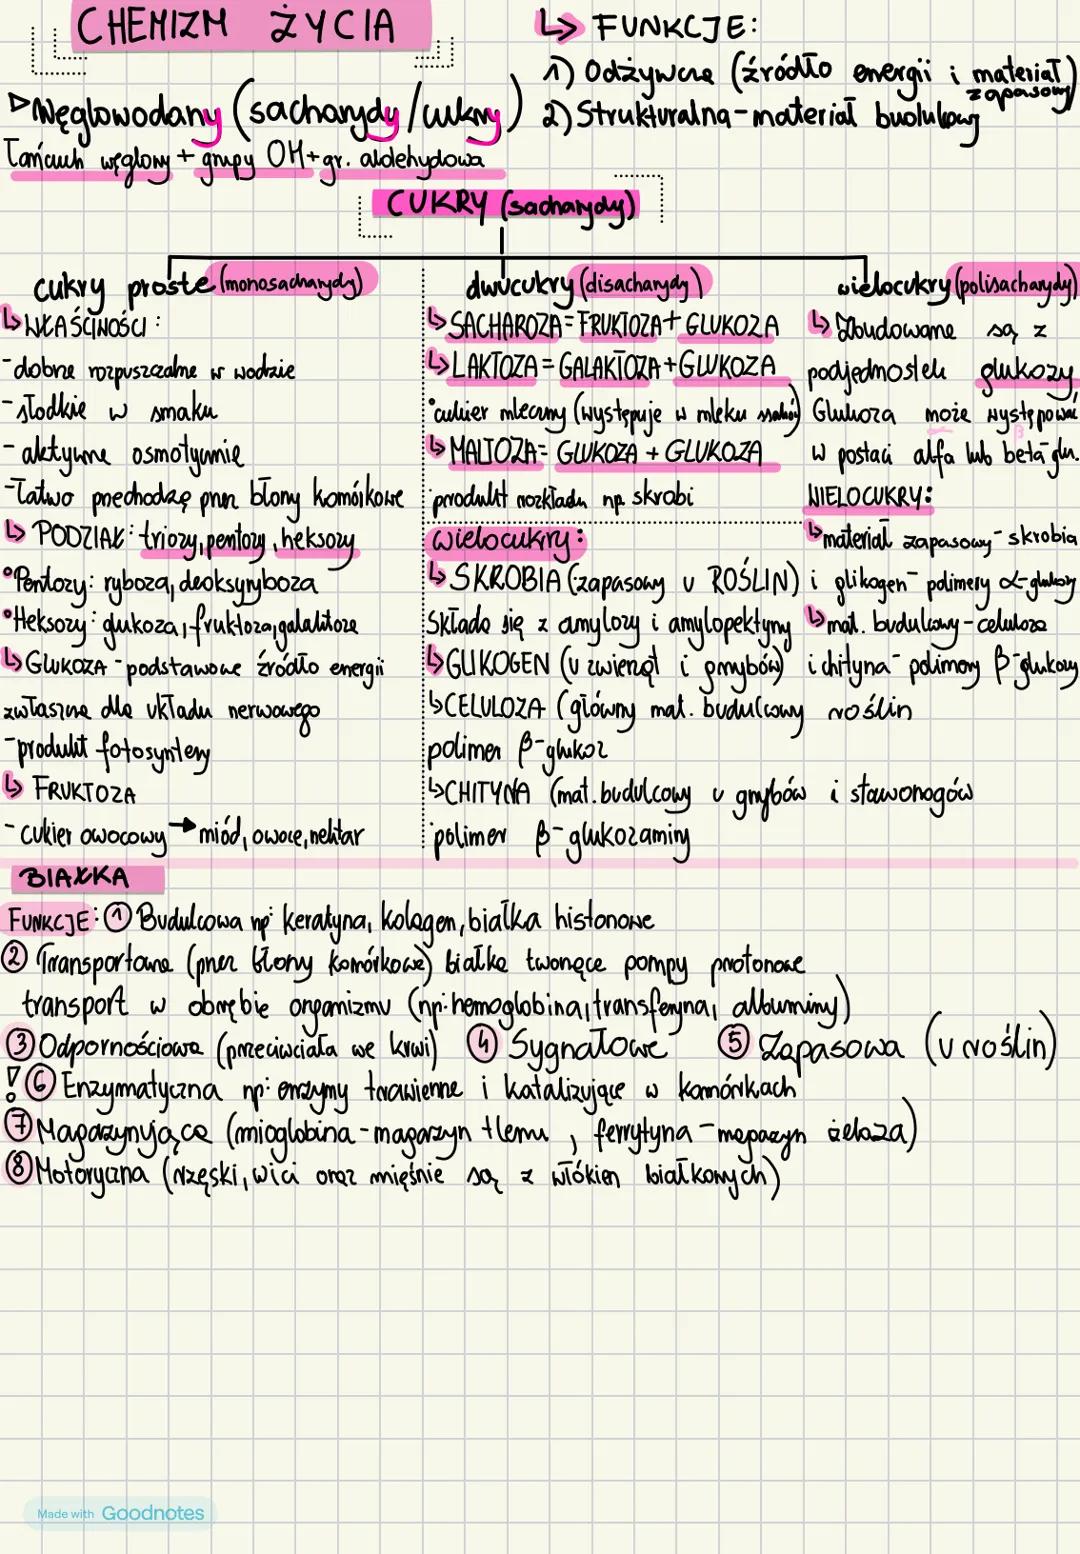 CHEMIZM ŻYCIA
▷ Węglowodany (sacharydy/cukry)
Łańcuch węglowy + grupy OH + gr. aldehydowa
↳ FUNKCJE:
1) Odżywcza (źródło energii i materiał zapasowy)
2) Strukturalna - materiał budulcowy
CUKRY (sacharydy)
cukry proste (monosacharydy)
↳ WŁAŚCIWOŚCI:
- dobrze rozpuszczalne w wodzie
- słodkie w smaku
- aktywne osmotycznie
- łatwo przechodzą przez błony komórkowe
↳ PODZIAŁ: triozy, pentozy, heksozy
• Pentozy: ryboza, deoksyryboza
• Heksozy: glukoza, fruktoza, galaktoza
↳ GLUKOZA - podstawowe źródło energii
zwłaszcza dla układu nerwowego
- produkt fotosyntezy
↳ FRUKTOZA
- cukier owocowy → miód, owoce, nektar
dwucukry (disacharydy)
↳ SACHAROZA = FRUKTOZA + GLUKOZA
↳ LAKTOZA = GALAKTOZA + GLUKOZA
• cukier mleczny (występuje w mleku ssaków)
↳ MALTOZA = GLUKOZA + GLUKOZA
produkt rozkładu np. skrobi
wielocukry:
↳ SKROBIA (zapasowy u ROŚLIN)
Składa się z amylozy i amylopektyny
↳ GLIKOGEN (u zwierząt i grzybów)
↳ CELULOZA (główny mat. budulcowy roślin
polimer β-glukoz
↳ CHITYNA (mat. budulcowy u grzybów i stawonogów
polimer β-glukozaminy
wielocukry (polisacharydy)
↳ Zbudowane są z
podjednostek glukozy
Glukoza może występować
w postaci alfa lub beta glu.
β
WIELOCUKRY:
↳ materiał zapasowy - skrobia
i glikogen - polimery α-glukozy
↳ mat. budulcowy - celuloza
i chityna - polimery β-glukozy
BIAŁKA
FUNKCJE: ① Budulcowa np: keratyna, kolagen, białka histonowe
② Transportowa (przez błony komórkowe) białka tworzące pompy protonowe
transport w obrębie organizmu (np: hemoglobina, transferyna, albuminy)
③ Odpornościowa (przeciwciała we krwi) ④ Sygnałowe ⑤ Zapasowa (u roślin)
! ⑥ Enzymatyczna np: enzymy trawienne i katalizujące w komórkach
⑦ Magazynująca (mioglobina - magazyn tlenu, ferrytyna - magazyn żelaza)
⑧ Motoryczna (rzęski, wici oraz mięśnie są z włókien białkowych)
Made with Goodnotes